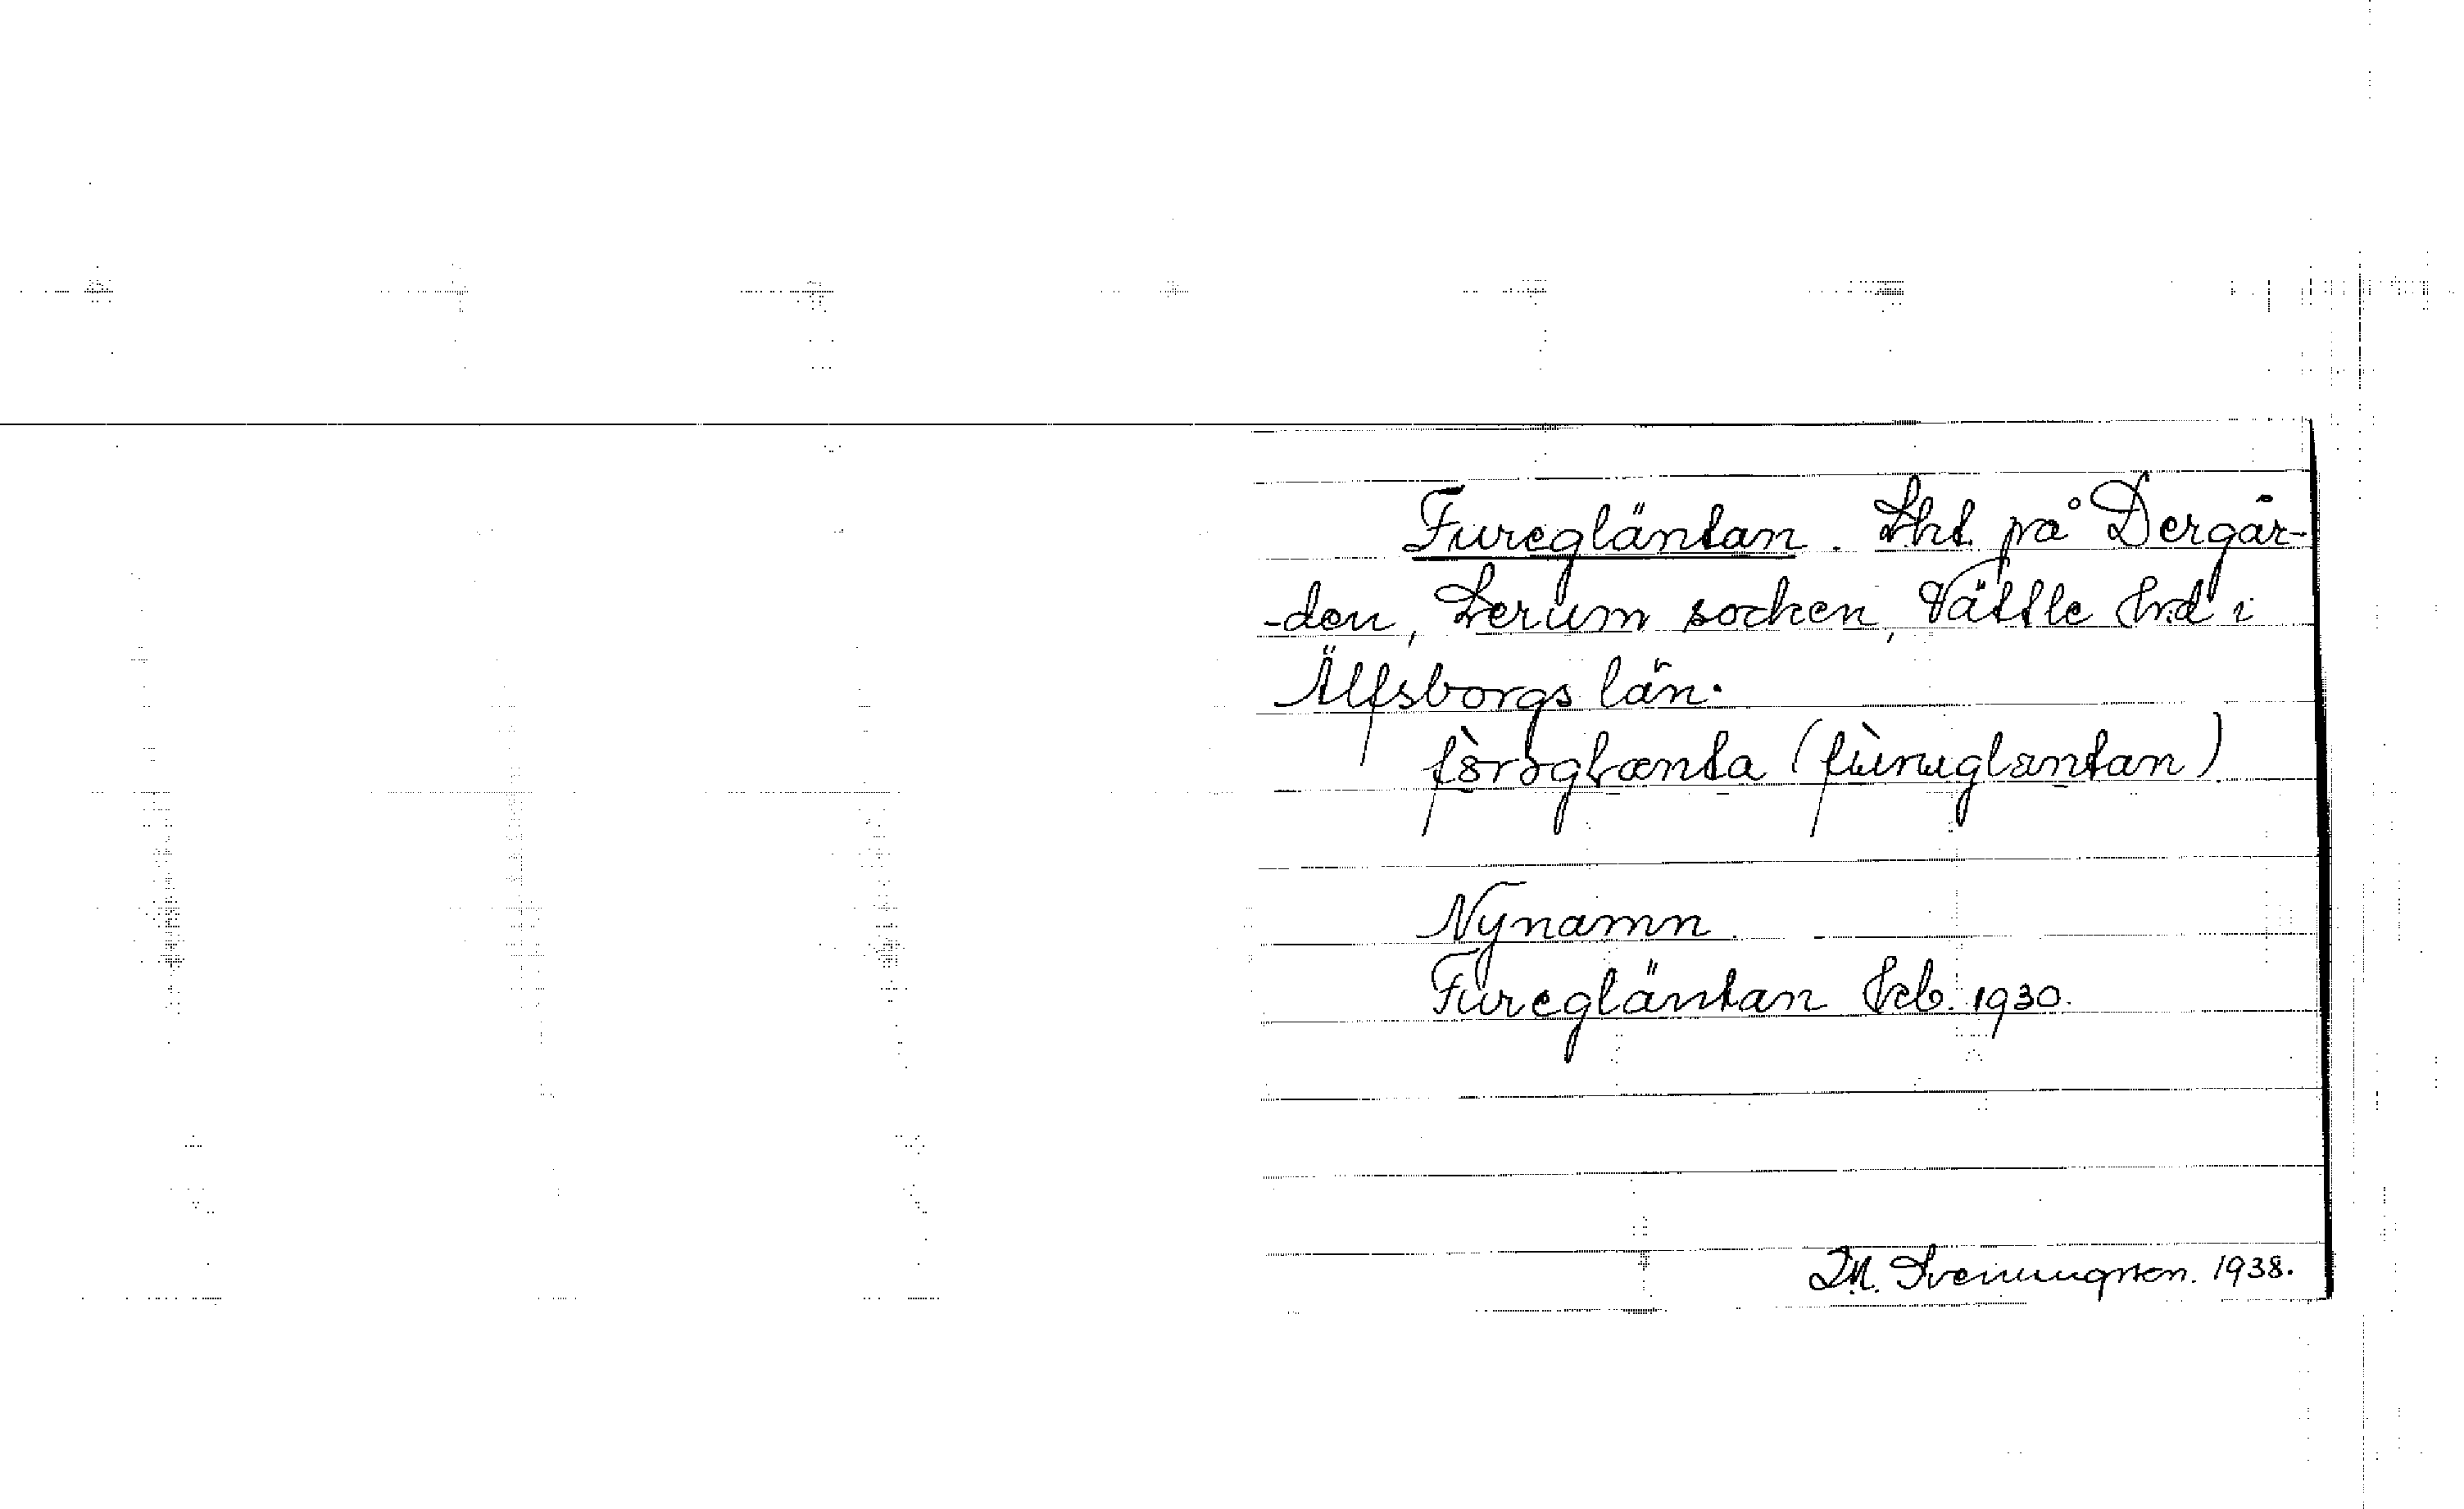 Furegläntan. Lht. på Dergår-
-den, Lerum socken, Vättle hrd i
Älfsborgs län.
fùroglænta (fùruglæntan)
Nynamn.
Furegläntan Jrb. 1930.
M. Sveningson. 1938.